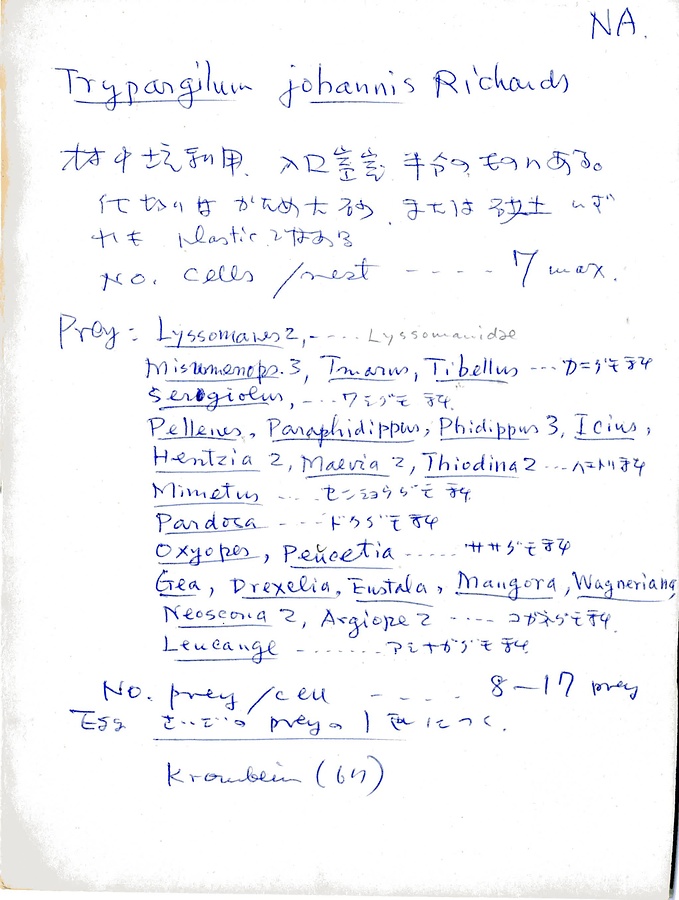 NA.
Trypargilum johannis Richards
材中坑利用. 入口室 半分のものにある。
仕切りは かため大砂. または 砂土 いず
れも plastic ではある
No. cells /nest ---- 7 max.
Prey: Lyssomanes 2, ---- Lyssomanidae
Misumenops. 3, Tmarus, Tibellus --- カニグモ科
Sergiolus, --- ワシグモ科
Pellenes, Paraphidippus, Phidippus 3, Icius,
Hentzia 2, Maevia 2, Thiodina 2 --- ハエトリ科
Mimetus --- センショウグモ科
Pardosa ---- ドクグモ科
Oxyopes, Peucetia ------ ササグモ科
Gea, Drexelia, Eustala, Mangora, Wagneriana
Neoscona 2, Argiope 2 ---- コガネグモ科.
Leucauge ------- アシナガグモ科
No. prey /cell ---- 8-17 prey
Egg さいごの preyの1 につく.
Krombein (67)